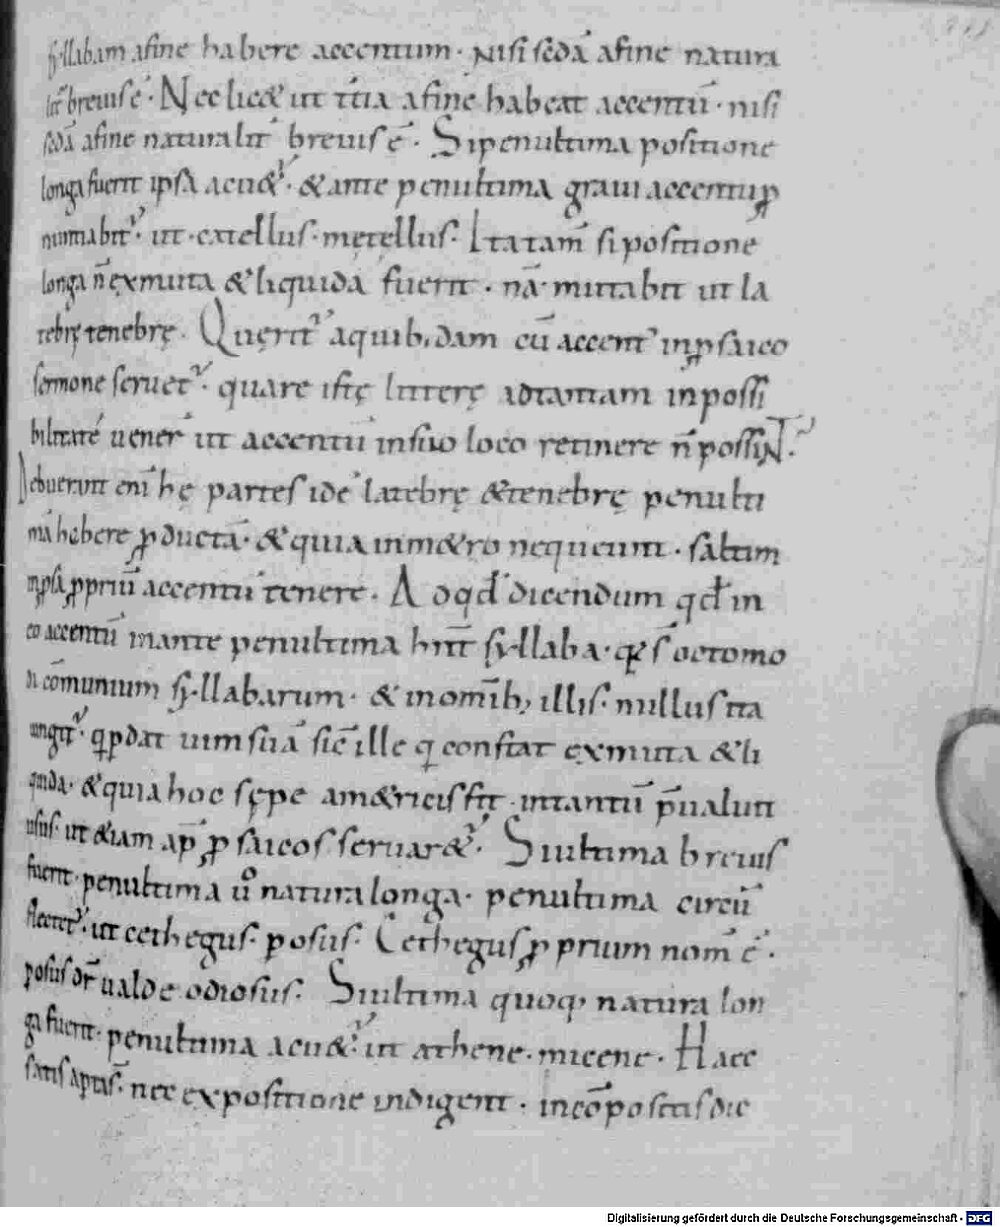 syllabam afine habere accentum · Nisi sedā afine natura
lit̄ breuis ē · Nec licet ut t̄tia afine habeat accentū · nisi
sedā afine naturalit̄ breuis ē · Si penultima positione
longa fuerit ipsa acuet᷑ · & ante penultima graui accentu ꝓ
nuntiabit᷑ · ut · catellus · metellus · Ita tam̄ si positione
longa n̄ exmuta & liquida fuerit · nā · mutabit ut la
tebrę tenebrę · Querit᷑ a quib; dam cū accent᷑ in ꝓsaico
sermone seruet᷑ · quare istę litterę ad tantam inpossi
bilitatē uener̄ ut accentū insuo loco retinere n̄ possiNT ·
Debuerunt eni᷑ hę partes idē latebrę & tenebrę penulti
mā habere ꝓductā · & quia in metro nequeunt · saltim
in ꝓsa ꝓpriū accentū tenere · Ad qd̄ dicendum qd̄ in
eo accentū in ante penultima hnt̄ syllaba · quę s̄ octo mo
di cōmunium syllabarum · & in omīb; illis · nullus ita
ungit᷑ · qꝑdat uim suā sic̄ ille q̄ constat exmuta & li
quida · & quia hoc sępe a metricis fit · intantū p̄ualuit
usus · ut etiam ap̄ ꝓsaicos seruaret᷑ · Si ultima breuis
fuerit · penultima ů natura longa · penultima circū
flectet᷑ · ut cethegus · perosus · Cethegus ꝓprium nom̄ ē ·
perosus dr̄ ualde odiosus · Si ultima quoq; natura lon
ga fuerit · penultima acuet᷑ ut athene · micene · Haec
satis aptis᷑ nec expositione indigent · in cōpositis dic
Digitalisierung gefördert durch die Deutsche Forschungsgemeinschaft - DFG